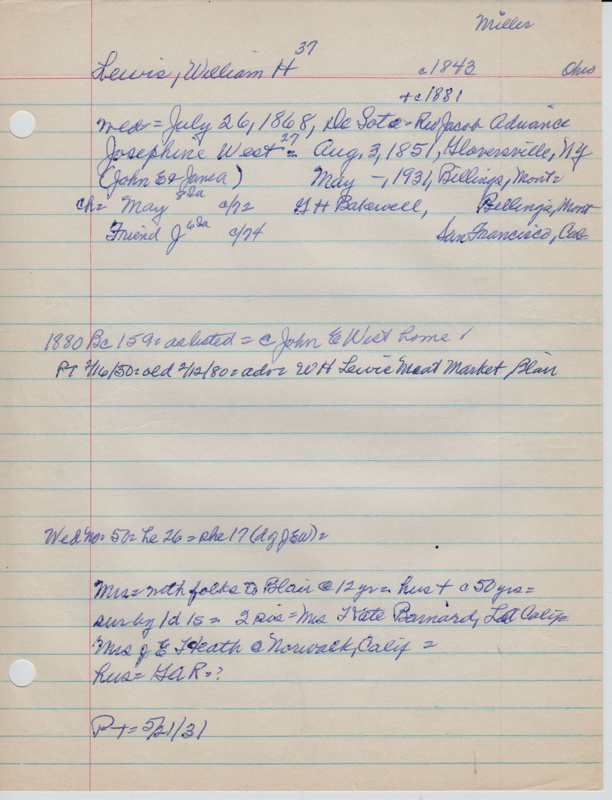 Miller
Lewis, William H 37 c1843 Ohio
+c1881
wed = July 26, 1868, De Soto = Rev Jacob Advance
Josephine West 27 = Aug. 3, 1851, Gloversville, NY
(John E & Jane a) May -, 1931, Billings, Mont =
ch = May 8 da c/72 G H Bakewell, Billings, Mont
Friend J 6 da c/74 San Francisco, Cal
1880 Bc 159 = as listed = c John E West home
PT 2/16/50 = old 2/12/80 = adv = W H Lewis Meat Market Blair
Wed No = 50 = he 26 = she 17 (dg JEW) =
Mrs = with folks to Blair @ 12 yr = hus + c 50 yrs =
sur by 1 d 1 s = 2 sis = Mrs Kate Barnard, Calif =
Mrs J E Heath @ Norwack, Calif =
hus = GAR = ?
P + = 5/21/31